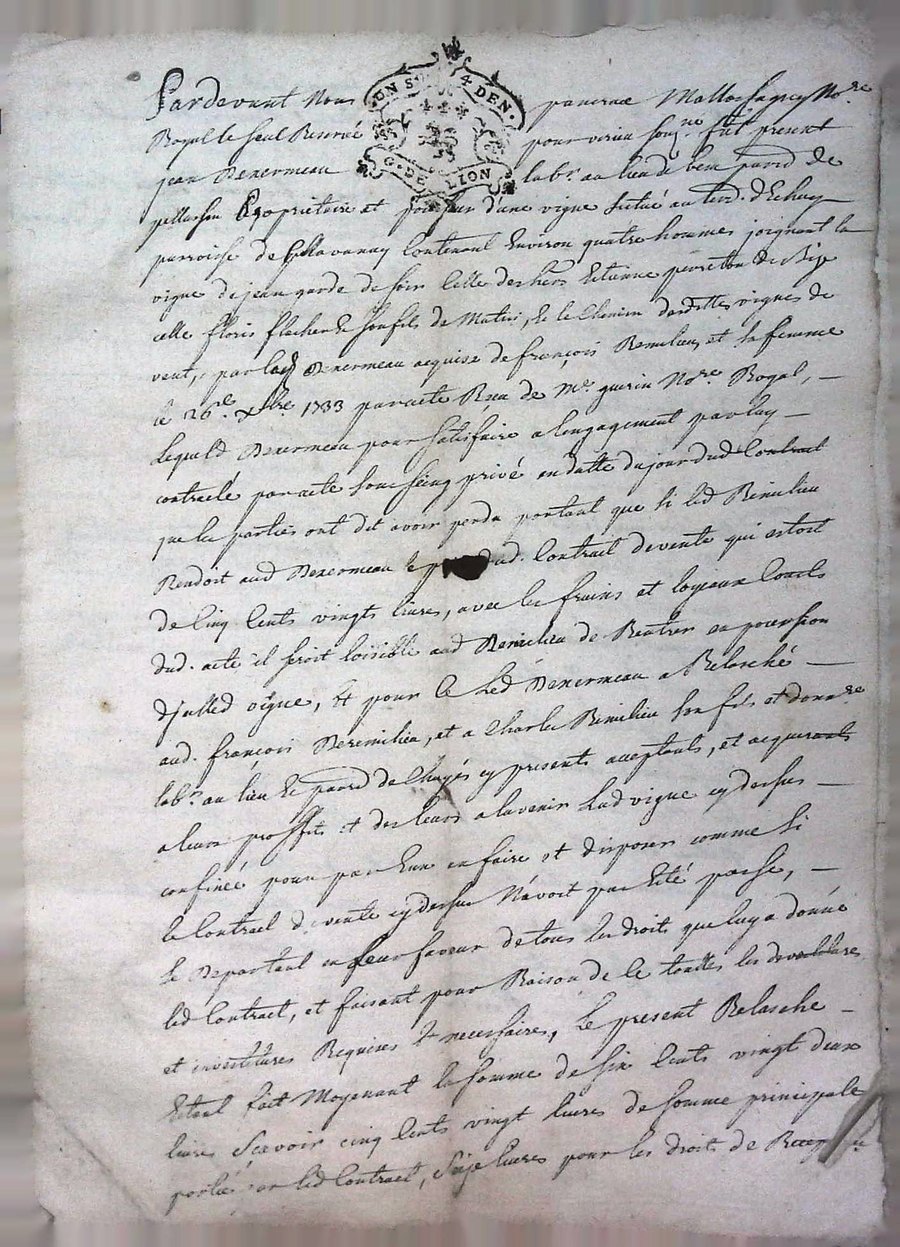 Pardevant Nous pancrace Mallassagny No.re
Royal le seul Reservé pour virieu sousg.ne fut present
jean Dexermeau lab.r au lieu de beu parr.d de
pellusson proprietaire et possesseur d'une vigne scitué au terr. d'Echuy
parroisse de Chavanay Contenant Environ quatre hommes joignant la
vigne de jean garde de soir Celle des hers Estienne perreton de Bize
celle floris flacher & son fils de Matin, & le Chemin desdittes vignes de
vent, par led Dexermeau acquise de françois Remilieu et sa femme
le 26.e xbre 1733 par acte Reçu de M.e guerin No.re Royal,
Lequel d. Dexermeau pour satisfaire a lengagement par luy
contracté par acte sous seing privé en datte du jour dud Contract
que les parties ont dit avoir perdu portant que si led Remilieu
Rendoit aud Dexermeau le dud. Contract de vente qui estoit
de Cinq Cents vingt livres, avec les frains et loyaux Couts
dud. acte il seroit loisible aud Remilieu de Rentrer en possession
d'jcelled vigne, & pour Ce led Dexermeau a Relasché
aud. françois Remilieu, et a Charles Remilieu son fils et donn.re
lab.r au lieu & parr.d de Chuyés cy presents acceptants, et acquerants
a leurs proffits et des leurs a lavenir lad vigne cy dessus
confinée pour par Eux en faire et disposer comme si
le Contract de vente cy dessus N'avoit pas Eté passé,
se Departant en leur faveur de tous les droits que luy a donné
led Contract, et faisant pour Raison de Ce touttes les devestitures
et investitures Requises & necessaires, le present Relasche
Estant fait Moyenant la somme de six Cents vingt deux
livres Scavoir cinq Cents vingt livres de somme principale
portée par led Contract, Seize livres pour les droits de
UN S. 4 DEN.
G. DE LION